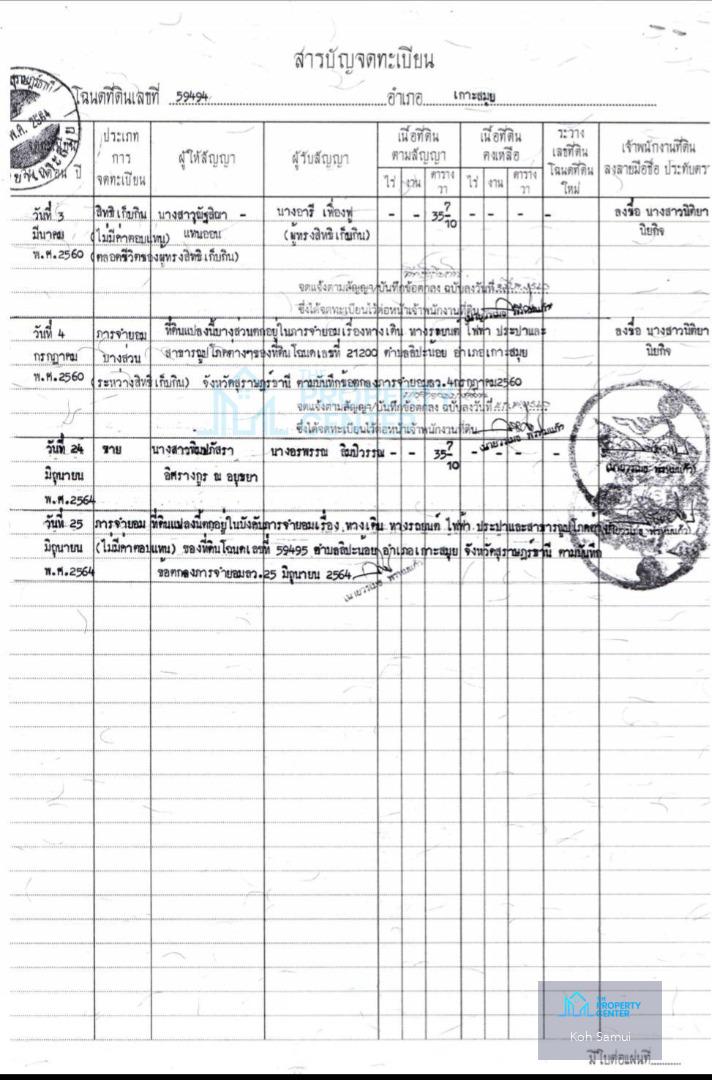 สารบัญจดทะเบียน
โฉนดที่ดินเลขที่ 59494 อำเภอ เกาะสมุย
พ.ศ. 2564
จดทะเบียน วัน เดือน ปี
ประเภทการจดทะเบียน
ผู้ให้สัญญา
ผู้รับสัญญา
เนื้อที่ดินตามสัญญา
ไร่ งาน ตารางวา
เนื้อที่ดินคงเหลือ
ไร่ งาน ตารางวา
ระวาง เลขที่ดิน โฉนดที่ดินใหม่
เจ้าพนักงานที่ดิน ลงลายมือชื่อ ประทับตรา
วันที่ 3 สิทธิเก็บกิน - นางอารี เฟื่องฟู - - 35 7/10 - - - - ลงชื่อ นางสาวนิติยา
มีนาคม (ไม่มีค่าตอบแทน) แทนออน (ผู้ทรงสิทธิเก็บกิน) นิยกิจ
พ.ศ.2560 (ตลอดชีวิตของผู้ทรงสิทธิเก็บกิน)
จดแจ้งตามสัญญา/บันทึกข้อตกลง ฉบับลงวันที่
ซึ่งได้จดทะเบียนไว้ต่อหน้าเจ้าพนักงานที่ดิน
วันที่ 4 ภาระจำยอม ที่ดินแปลงนี้บางส่วนตกอยู่ในภารจำยอมเรื่องทางเดิน ทางรถยนต์ ไฟฟ้า ประปาและ ลงชื่อ นางสาวนิติยา
กรกฎาคม บางส่วน สาธารณูปโภคต่างๆของที่ดินโฉนดเลขที่ 21200 ตำบลลิปะน้อย อำเภอเกาะสมุย นิยกิจ
พ.ศ.2560 (ระหว่างสิทธิเก็บกิน) จังหวัดสุราษฎร์ธานี ตามบันทึกข้อตกลงภารจำยอมลว.4กรกฎาคม2560
จดแจ้งตามสัญญา/บันทึกข้อตกลง ฉบับลงวันที่
ซึ่งได้จดทะเบียนไว้ต่อหน้าเจ้าพนักงานที่ดิน
วันที่ 24 ขาย นางสาวพิมปภัสรา นางอรพรรณ ลิมปิวรรณ - - 35 7/10 - - - -
มิถุนายน อิศรางกูร ณ อยุธยา
พ.ศ.2564
วันที่ 25 ภาระจำยอม ที่ดินแปลงนี้ตกอยู่ในบังคับภารจำยอมเรื่อง ทางเดิน ทางรถยนต์ ไฟฟ้า ประปาและสาธารณูปโภค
มิถุนายน (ไม่มีค่าตอบแทน) ของที่ดินโฉนดเลขที่ 59495 ตำบลลิปะน้อย อำเภอเกาะสมุย จังหวัดสุราษฎร์ธานี ตามบันทึก
พ.ศ.2564 ข้อตกลงภารจำยอมลว.25 มิถุนายน 2564
THE PROPERTY CENTER
THE PROPERTY CENTER
Koh Samui
มีใบต่อแผ่นที่